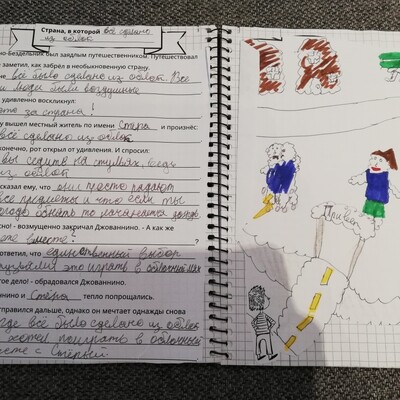 Страна, в которой всё сделано
из облак
но-Бездельник был заядлым путешественником. Путешествовал
заметил, как забрёл в необыкновенную страну.
не всё было сделано из облак. Все
и люди были воздушны
удивленно воскликнул:
то за страна!
у вышел местный житель по имени Стёпа и произнёс:
всё сделано из облак
конечно, рот открыл от удивления. И спросил:
вы сидите на стульях, ведь
из облак
сказал ему, что они просто
все предметы и что если ты
то начинается дождь
сно! - возмущенно закричал Джованнино. - А как же
вместе?
ответил, что единственный выбор
это играть в
гое дело! - обрадовался Джованнино.
нино и Стёпа тепло попрощались.
правился дальше, однако он мечтает однажды снова
где всё было сделано из облак
хотел поиграть в облачный
с Стёпой
Привет